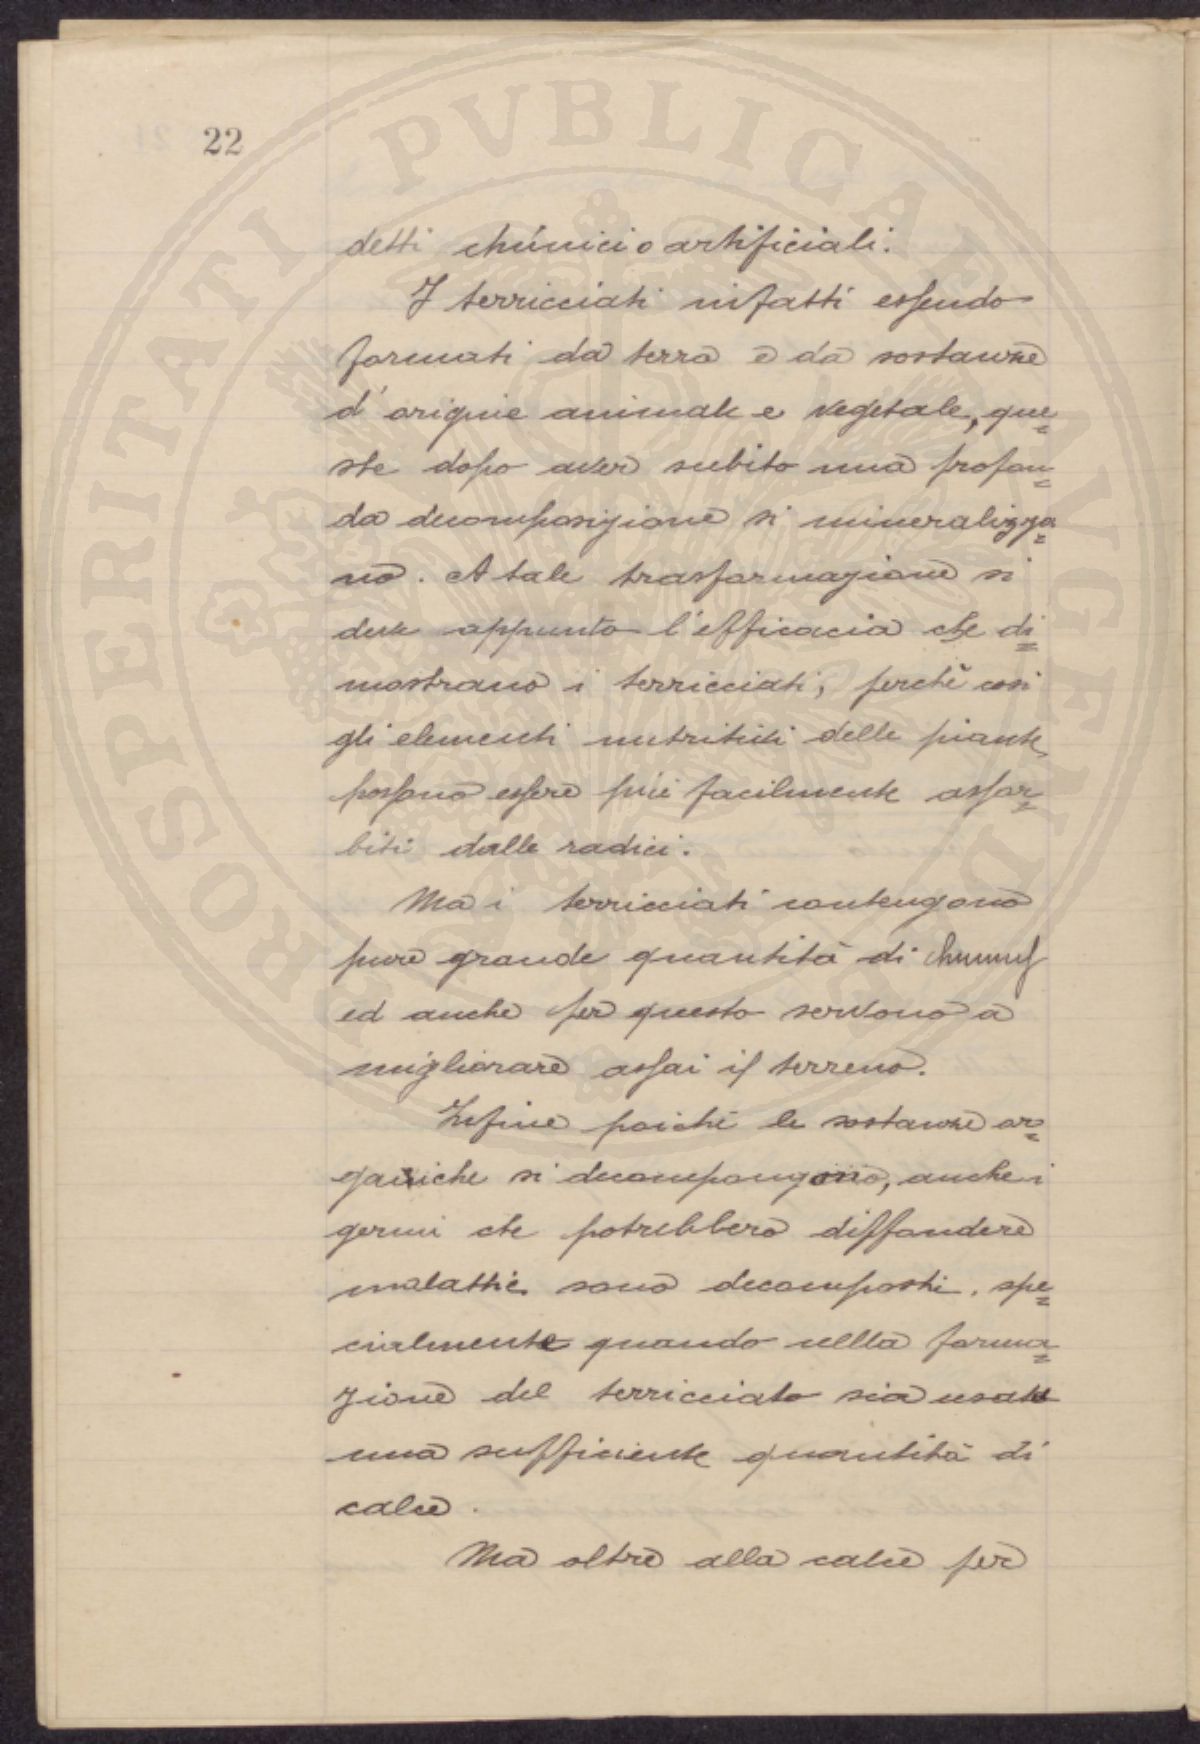 22
PROSPERITATI PVBLICAE AVGENDAE
detti chimici o artificiali.
I terricciati infatti essendo
formati da terra e da sostanze
d'origine animale e vegetale, que=
ste dopo aver subito una profon=
da decomposizione si mineralizza=
no. A tale trasformazione si
deve appunto l'efficacia che di=
mostrano i terricciati, perchè così
gli elementi nutritivi delle piante
possono essere più facilmente assor=
biti dalle radici.
Ma i terricciati contengono
pure grande quantità di humus
ed anche per questo servono a
migliorare assai il terreno.
Infine poichè le sostanze or=
ganiche si decompongono, anche i
germi che potrebbero diffondere
malattie sono decomposti, spe=
cialmente quando nella forma=
zione del terricciato sia usata
una sufficiente quantità di
calce.
Ma oltre alla calce per